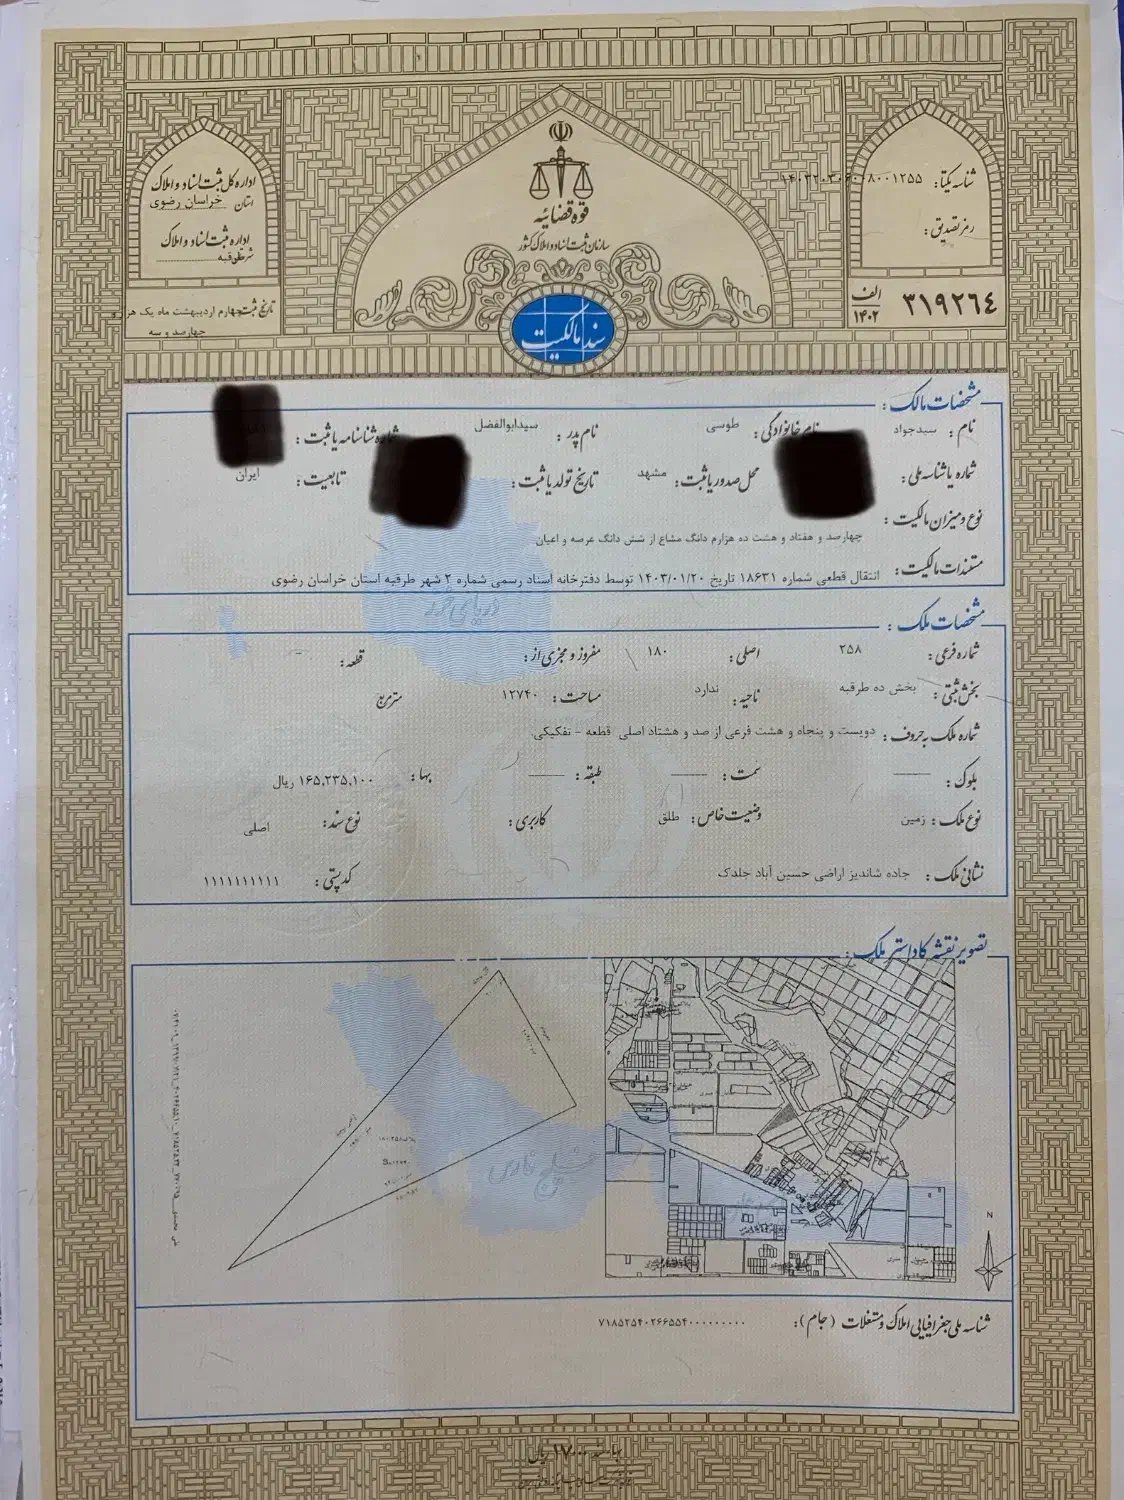 شناسه یکتا: ۱۴۰۳۲۰۳۰۶۰۰۸۰۰۱۲۵۵
رمز تصدیق:
۳۱۹۲۶۴ الف ۱۴۰۲
قوه قضائیه
سازمان ثبت اسناد و املاک کشور
سند مالکیت
اداره کل ثبت اسناد و املاک
استان خراسان رضوی
اداره ثبت اسناد و املاک
طرقبه
تاریخ ثبت چهارم اردیبهشت ماه یک
چهارصد و سه
مشخصات مالک:
نام: سیدجواد نام خانوادگی: طوسی نام پدر: سیدابوالفضل شماره شناسنامه یا ثبت:
شماره یا شناسه ملی: محل صدور یا ثبت: مشهد تاریخ تولد یا ثبت: تابعیت: ایران
نوع و میزان مالکیت:
چهارصد و هفتاد و هشت ده هزارم دانگ مشاع از شش دانگ عرصه و اعیان
مستندات مالکیت: انتقال قطعی شماره ۱۸۶۳۱ تاریخ ۱۴۰۳/۰۱/۲۰ توسط دفترخانه اسناد رسمی شماره ۲ شهر طرقبه استان خراسان رضوی
مشخصات ملک:
شماره فرعی: ۲۵۸ اصلی: ۱۸۰ مفروز و مجزی از: قطعه: -
بخش ثبتی: بخش ده طرقبه ناحیه: ندارد مساحت: ۱۲۷۴۰ مترمربع
شماره ملک به حروف: دویست و پنجاه و هشت فرعی از صد و هشتاد اصلی قطعه - تفکیکی.
بلوک: سمت: طبقه: بها: ۱۶۵,۲۳۵,۱۰۰ ریال
نوع ملک: زمین وضعیت خاص: طلق کاربری: نوع سند: اصلی
نشانی ملک: جاده شاندیز اراضی حسین آباد جلدک کدپستی: ۱۱۱۱۱۱۱۱۱۱
تصویر نقشه کاداستر ملک:
خلیج فارس
N
شناسه ملی جغرافیایی املاک و مستغلات (جام): ۷۱۸۵۲۵۴۰۲۶۶۵۵۴۰۰۰۰۰۰۰۰۰